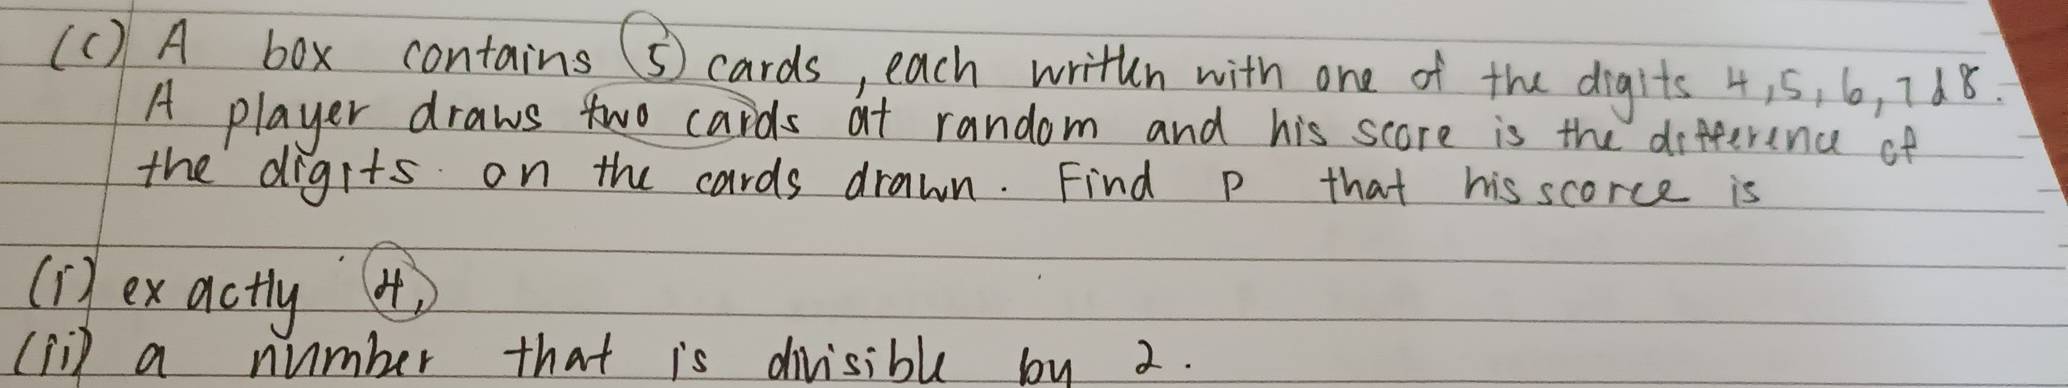 (c) A box contains 5 cards, each written with one of the digits 4, 5, 6, 7 & 8.
A player draws two cards at random and his score is the difference of
the digits on the cards drawn. Find P that his scorce is
(i) exactly 4,
(ii) a number that is divisible by 2.